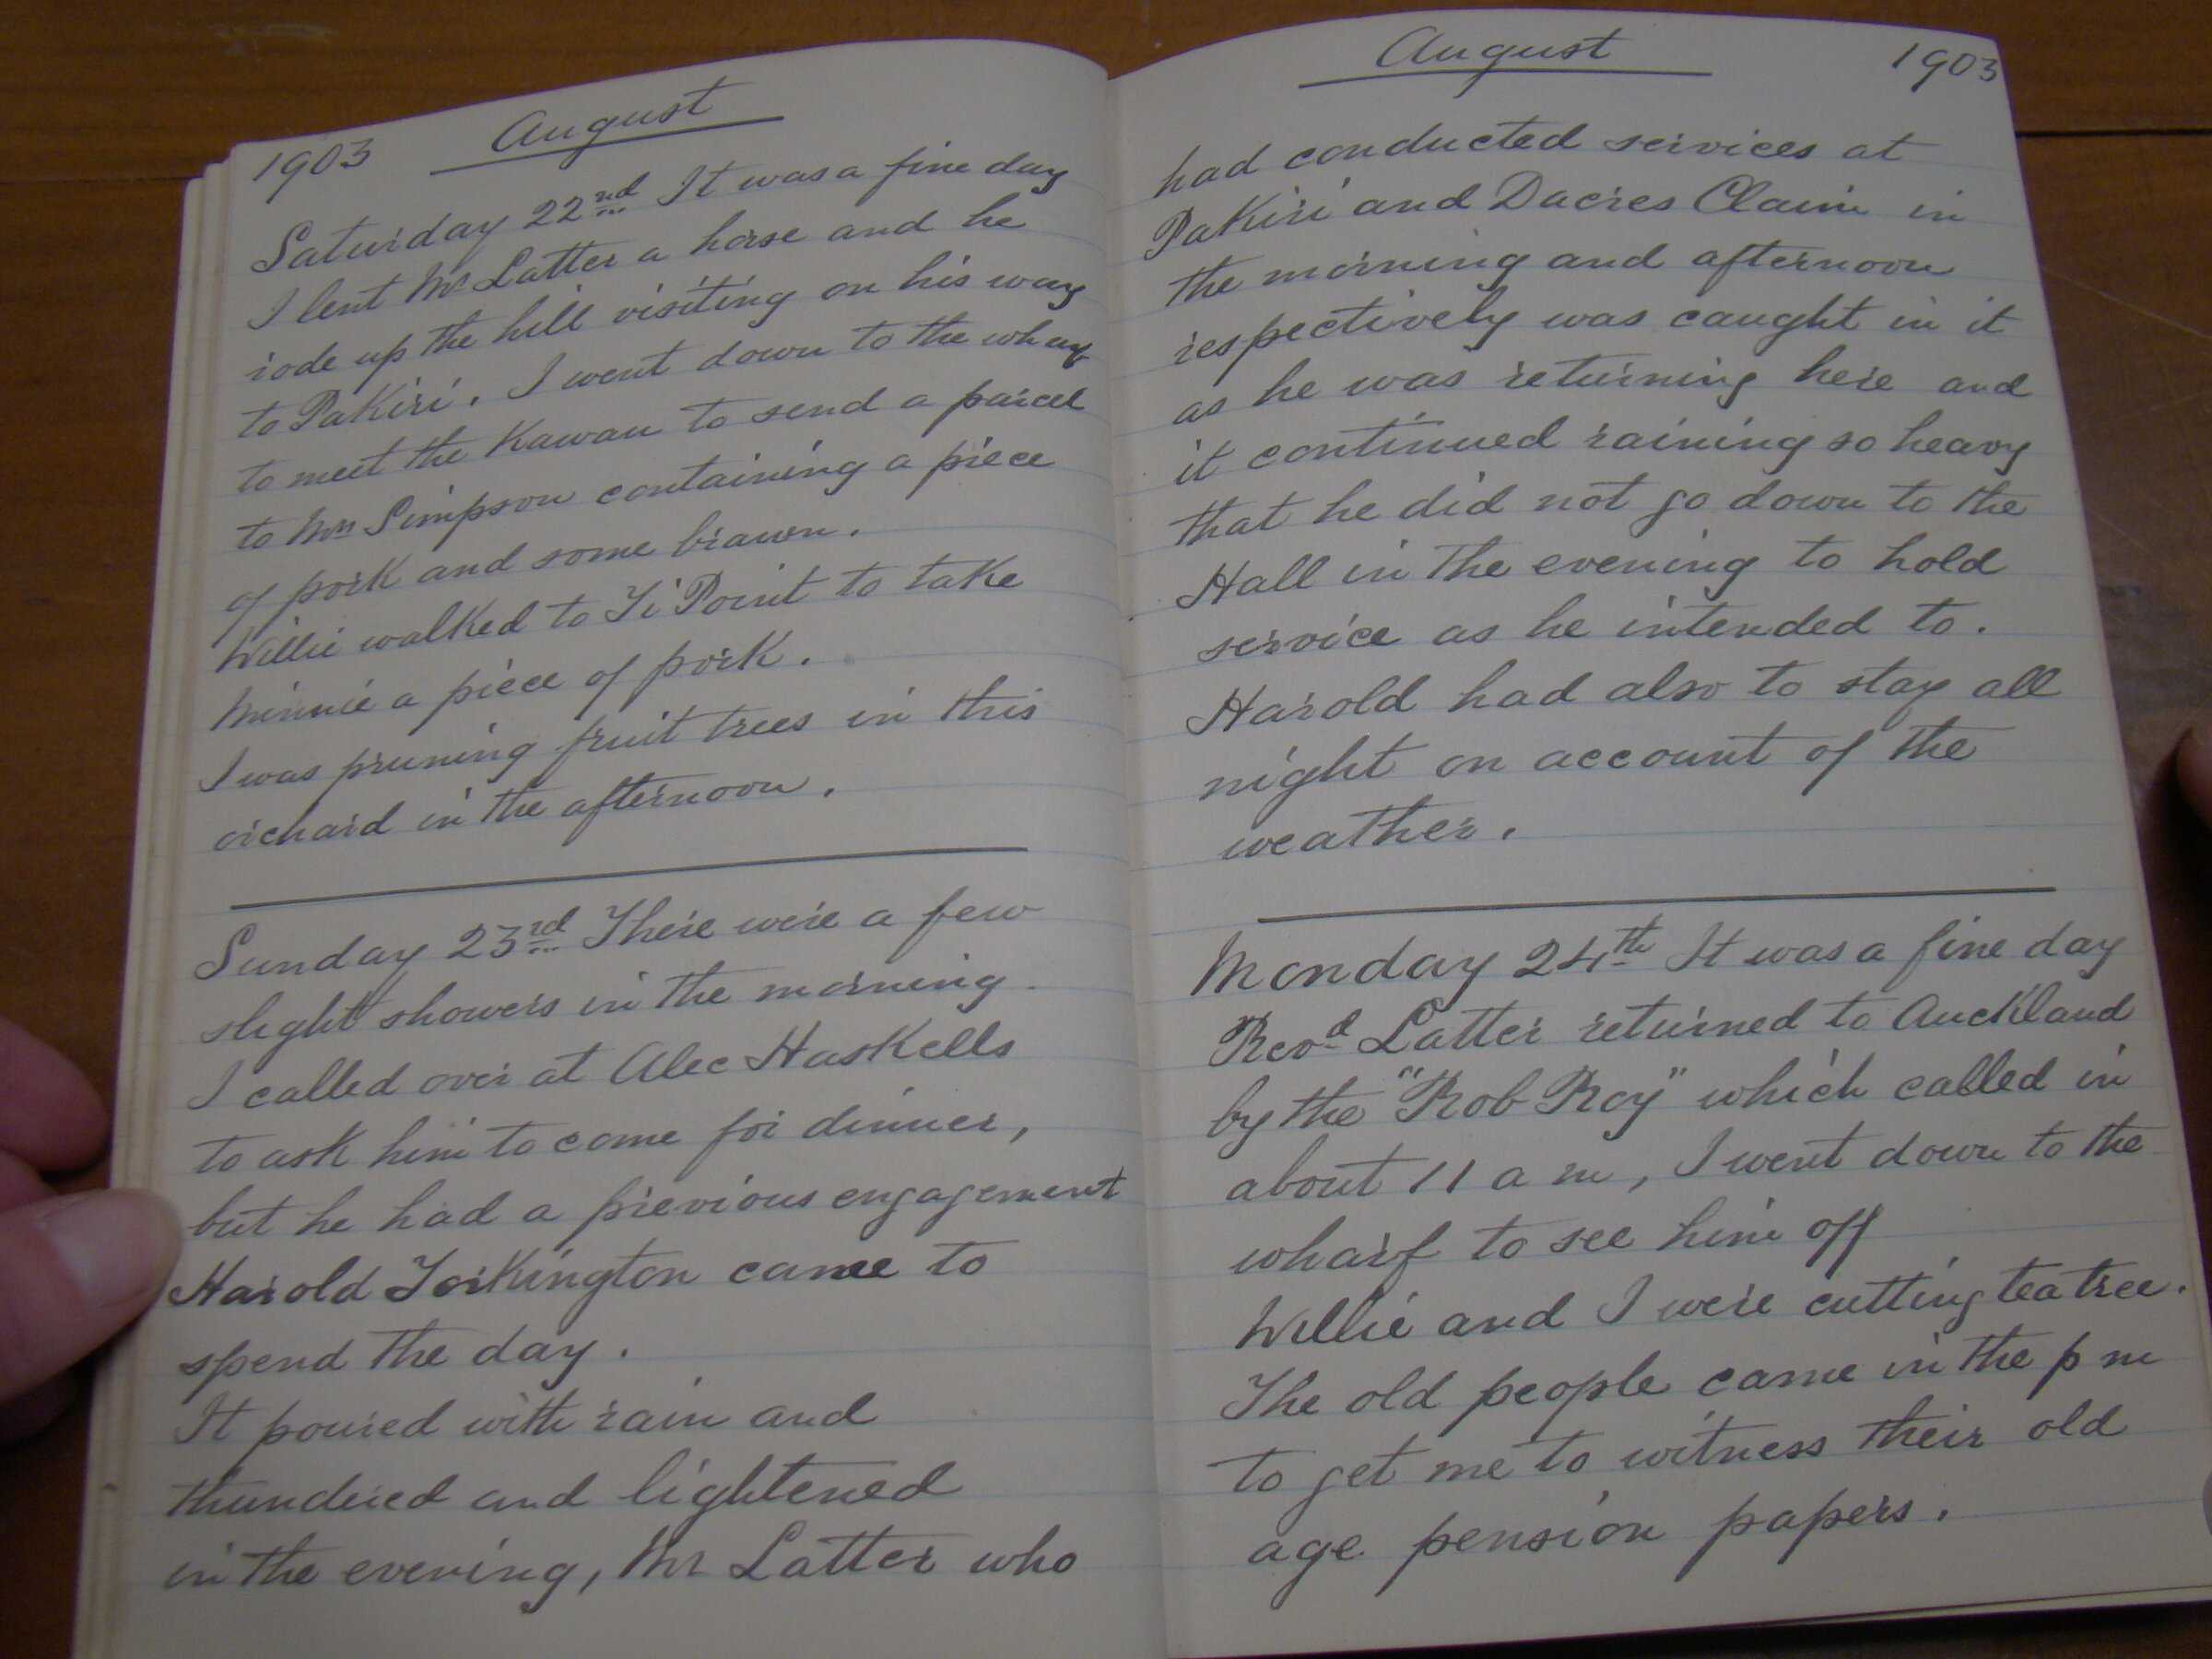 1903 August
Saturday 22nd It was a fine day
I lent Mr Latter a horse and he
rode up the hill visiting on his way
to Pakiri. I went down to the wharf
to meet the Kawau to send a parcel
to Mrs Simpson containing a piece
of pork and some brawn.
Willie walked to Ti Point to take
Minnie a piece of pork.
I was pruning fruit trees in this
orchard in the afternoon.
Sunday 23rd There were a few
slight showers in the morning.
I called over at Alec Haskells
to ask him to come for dinner,
but he had a previous engagement
Harold Torkington came to
spend the day.
It poured with rain and
thundered and lightened
in the evening, Mr Latter who
August 1903
had conducted services at
Pakiri and Dacres Claim in
the morning and afternoon
respectively was caught in it
as he was returning here and
it continued raining so heavy
that he did not go down to the
Hall in the evening to hold
service as he intended to.
Harold had also to stay all
night on account of the
weather.
Monday 24th It was a fine day
Revd Latter returned to Auckland
by the "Rob Roy" which called in
about 11 a m, I went down to the
wharf to see him off
Willie and I were cutting tea tree.
The old people came in the p m
to get me to witness their old
age pension papers.